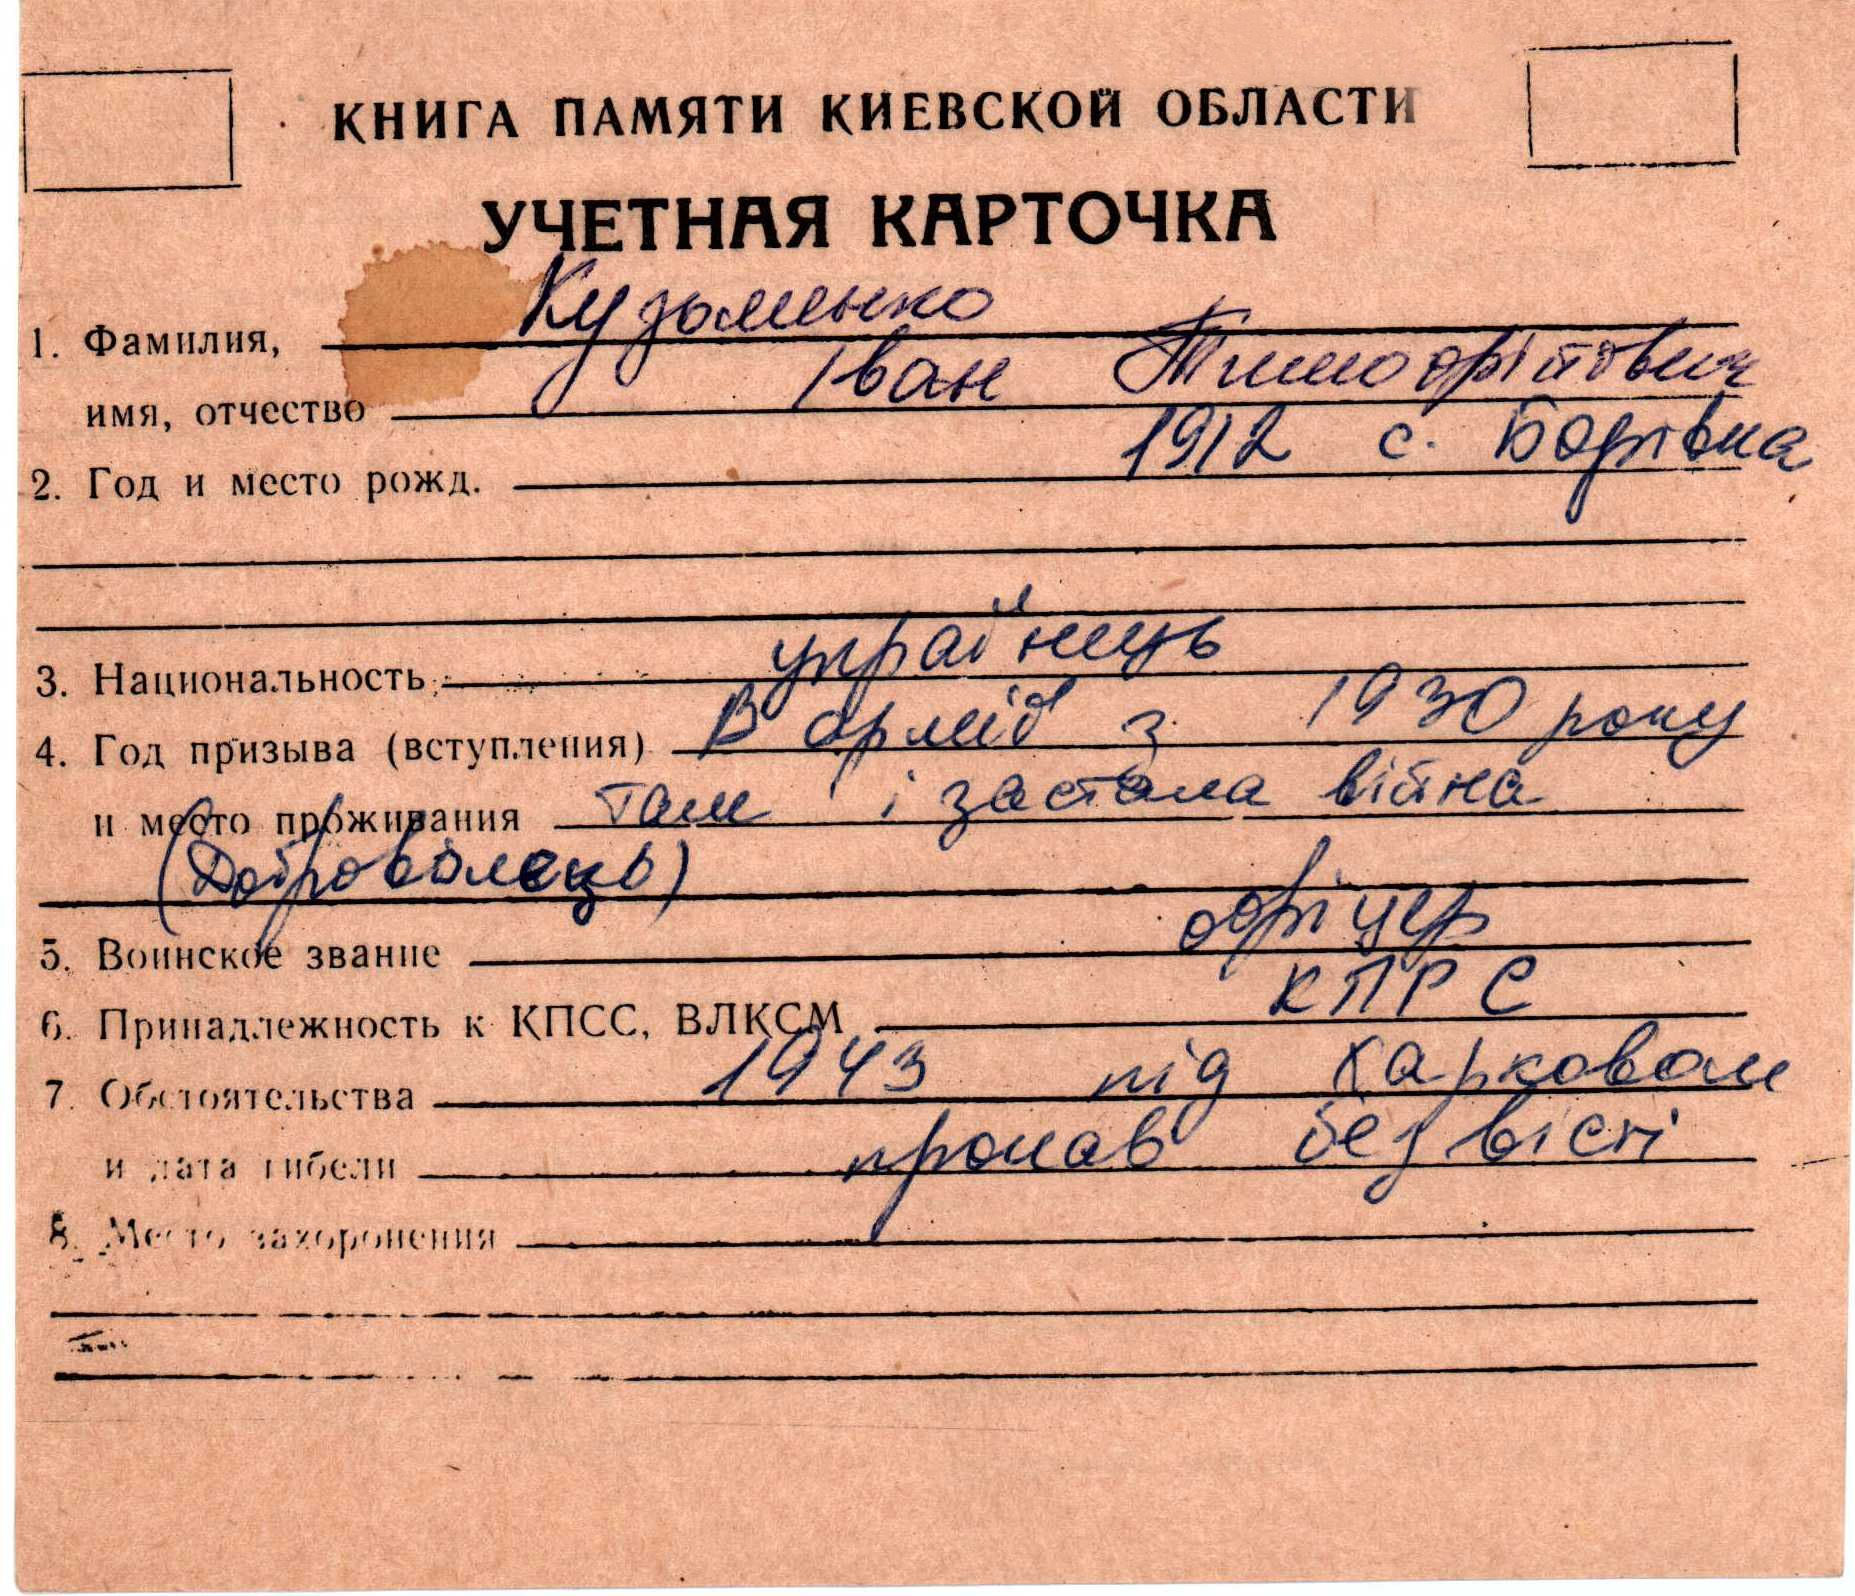 КНИГА ПАМЯТИ КИЕВСКОЙ ОБЛАСТИ
УЧЕТНАЯ КАРТОЧКА
1. Фамилия, Кузьменко
имя, отчество Іван Тимофійович
2. Год и место рожд. 1912 с. Борівка
3. Национальность українець
4. Год призыва (вступления) В армії з 1930 року
и место проживания там і застала війна
(Доброволець)
5. Воинское звание офіцер
6. Принадлежность к КПСС, ВЛКСМ КПРС
7. Обстоятельства 1943 під Харковом
и дата гибели пропав безвісті
8. Место захоронения